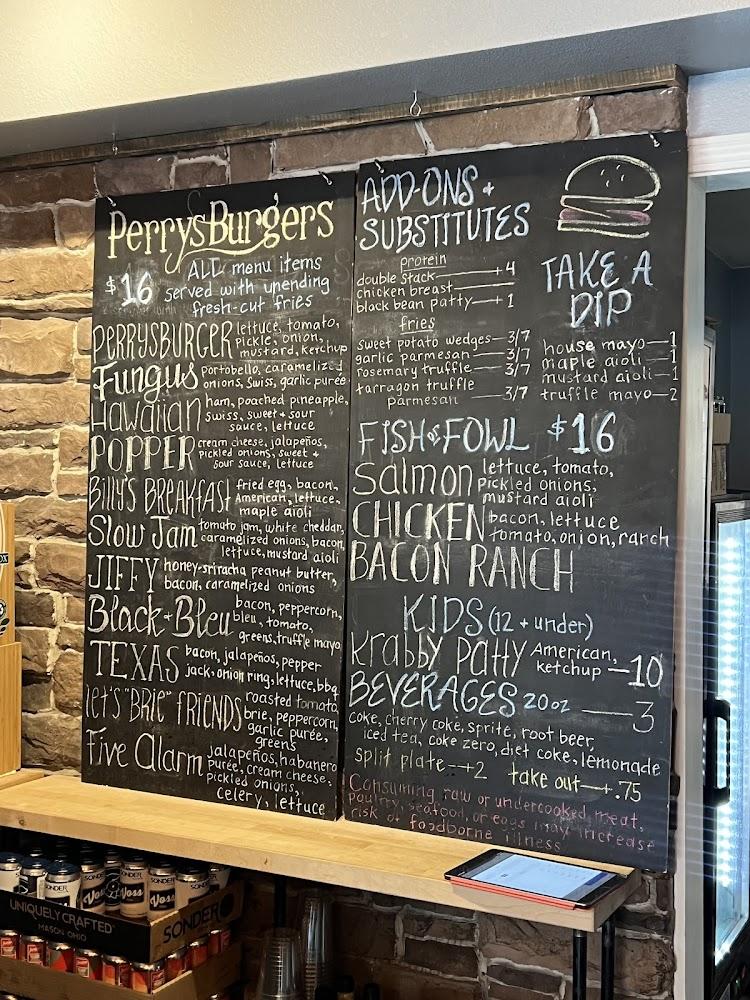 PerrysBurgers
$16 ALL menu items
served with unending
fresh-cut fries
PERRYSBURGER lettuce, tomato,
pickle, onion,
mustard, ketchup
Fungus portobello, caramelized
onions, Swiss, garlic purée
Hawaiian ham, poached pineapple,
swiss, sweet + sour
sauce, lettuce
POPPER cream cheese, jalapeños,
pickled onions, sweet +
sour sauce, lettuce
BILLY'S BREAKFAST fried egg, bacon,
American, lettuce,
maple aioli
Slow Jam tomato jam, white cheddar,
caramelized onions, bacon,
lettuce, mustard aioli
JIFFY honey-sriracha peanut butter,
bacon, caramelized onions
Black + Bleu bacon, peppercorn,
bleu, tomato,
greens, truffle mayo
TEXAS bacon, jalapeños, pepper
jack, onion ring, lettuce, bbq
let's "BRIE" friends roasted tomato,
brie, peppercorn,
garlic purée,
greens
Five Alarm jalapeños, habanero
purée, cream cheese,
pickled onions,
celery, lettuce
ADD-ONS +
SUBSTITUTES
protein
double stack — +4
chicken breast —
black bean patty — +1
fries
sweet potato wedges — 3/7
garlic parmesan — 3/7
rosemary truffle — 3/7
tarragon truffle
parmesan — 3/7
TAKE A
DIP
house mayo — 1
maple aioli — 1
mustard aioli — 1
truffle mayo — 2
FISH & FOWL $16
Salmon lettuce, tomato,
pickled onions,
mustard aioli
CHICKEN bacon, lettuce
tomato, onion, ranch
BACON RANCH
KIDS (12 + under)
Krabby Patty American,
ketchup — 10
BEVERAGES 20oz — 3
coke, cherry coke, sprite, root beer,
iced tea, coke zero, diet coke, lemonade
split plate — +2 take out — +.75
Consuming raw or undercooked meat,
poultry, seafood, or eggs may increase
risk of foodborne illness
SONDER
Voss
UNIQUELY CRAFTED
MASON, OHIO
SONDER